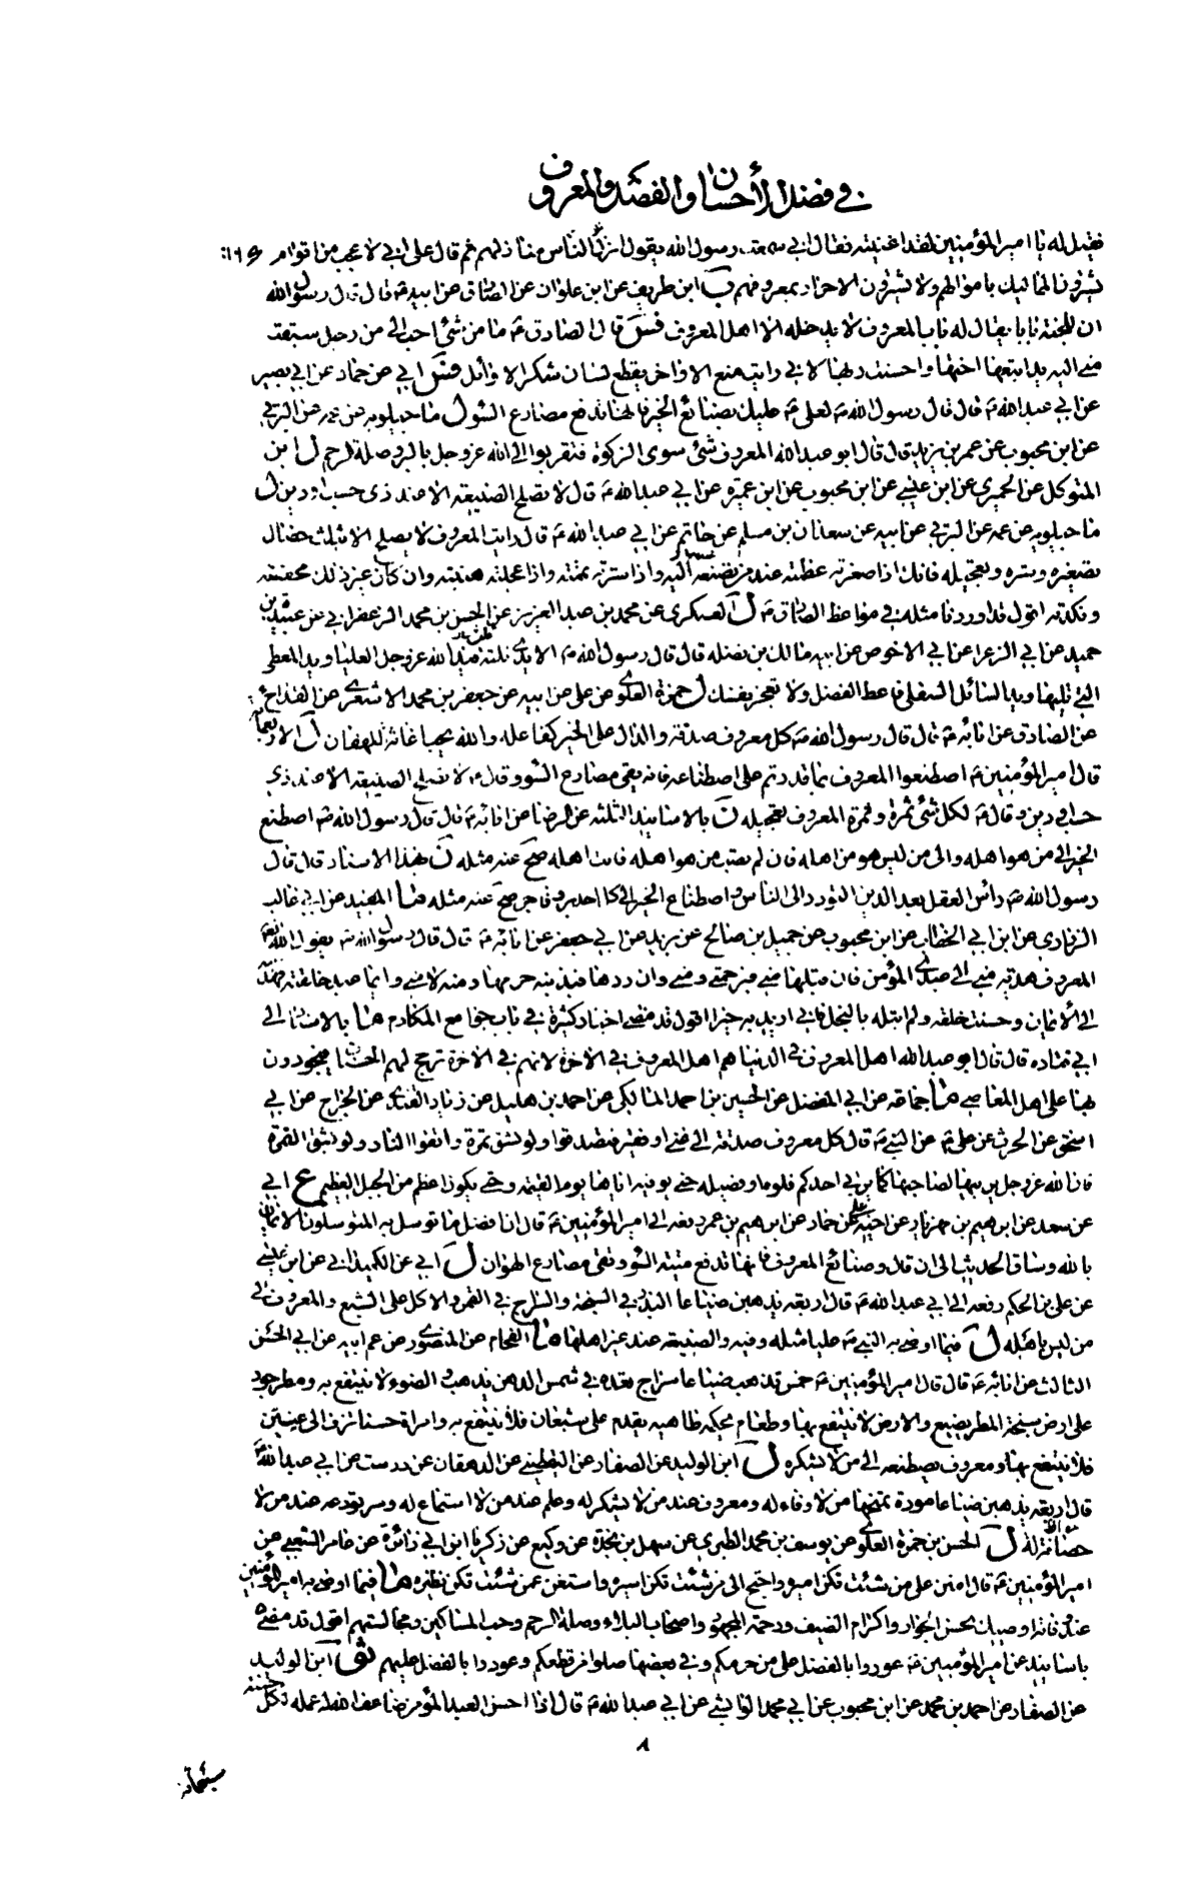 في فضل الأحسان والفضل والمعروف
فقيل له يا امير المؤمنين لقد اغنيته فقال اني سمعت رسول الله يقول انزلوا الناس منازلهم ثم قال علي اني لاعجب من اقوام
يشترون المماليك باموالهم ولا يشترون الاحرار بمعروفهم ب ابن طريف عن ابن علوان عن الصادق عن ابيه قال قال رسول الله
ان للجنة بابا يقال له باب المعروف لا يدخله الا اهل المعروف فس قال الصادق ما من شئ احب الي من رجل سبقت
مني اليه يد اتبعتها اختها واحسنت ربها لاني رايت منع الاواخر يقطع لسان شكر الاوائل فس ابي عن حماد عن ابي بصير
عن ابي عبد الله قال قال رسول الله لعلي عليك بصنائع الخير فانها تدفع مصارع السوء ل ماجيلويه عن عمه عن البرقي
عن ابن محبوب عن عمر بن يزيد قال قال ابو عبد الله المعروف شئ سوى الزكوة فتقربوا الى الله عز وجل بالبر وصلة الرحم ل ابن
المتوكل عن الحميري عن ابن عيسى عن ابن محبوب عن ابن عميرة عن ابي عبد الله قال لا تصلح الصنيعة الا عند ذي حسب او دين ل
ماجيلويه عن عمه عن البرقي عن ابيه عن سعدان بن مسلم عن حاتم عن ابي عبد الله قال رايت المعروف لا يصلح الا بثلث خصال
تصغيره وستره وتعجيله فانك اذا صغرته عظمته عند من تصنعه اليه واذا سترته تممته واذا عجلته هنيته وان كان غير ذلك محقته
ونكدته اقول قد اوردنا مثله في مواعظ الصادق ل العسكري عن محمد بن عبد العزيز عن الحسن بن محمد الزعفراني عن عبيدة بن
حميد عن ابي الزعرا عن ابي الاحوص عن ابيه مالك بن نضلة قال قال رسول الله الايدي ثلثة فيد الله عز وجل العليا ويد المعطي
التي تليها ويد السائل السفلى فاعط الفضل ولا تعجز نفسك ل حمزة العلوي عن علي عن ابيه عن جعفر بن محمد الاشعري عن القداح
عن الصادق عن ابائه قال قال رسول الله كل معروف صدقة والدال على الخير كفاعله والله يحب اغاثة اللهفان ل الاربعمائة
قال امير المؤمنين اصطنعوا المعروف بما قدرتم على اصطناعه فانه يقي مصارع السوء وقال لا تصلح الصنيعة الا عند ذي
حسب او دين وقال لكل شئ ثمرة وثمرة المعروف تعجيله ن بالاسانيد الثلثة عن الرضا عن ابائه قال قال رسول الله اصطنع
الخير الى من هو اهله والى من ليس هو من اهله فان لم تصب من هو اهله فانت اهله صح عنه مثله ن بهذا الاسناد قال قال
رسول الله رأس العقل بعد الدين التودد الى الناس واصطناع الخير الى كل احد بر وفاجر صح عنه مثله ما المفيد عن ابي غالب
الزراري عن ابن ابي الخطاب عن ابن محبوب عن جميل بن صالح عن بريد عن ابي جعفر عن ابائه قال قال رسول الله يقول الله تعالى
المعروف هدية مني الى عبدي المؤمن فان قبلها مني فبرحمتي ومني وان ردها فبذنبه حرمها ومنه لا مني وايما عبد خلقته فهديته
الى الايمان وحسنت خلقه ولم ابتله بالبخل فاني اريد به خيرا اقول قد مضى اخبار كثيرة في باب جوامع المكارم ما بالاسناد الى
ابي قتادة قال قال ابو عبد الله اهل المعروف في الدنيا هم اهل المعروف في الاخرة لانهم في الاخرة ترجح لهم الحسنات فيجودون
بها على اهل المعاصي ما جماعة عن ابي المفضل عن الحسين بن احمد المالكي عن احمد بن هليل عن زياد القندي عن الجراح عن ابي
اسحق عن الحرث عن علي عن النبي قال كل معروف صدقة الى غني او فقير فتصدقوا ولو بشق تمرة واتقوا النار ولو بشق التمرة
فان الله عز وجل يربيها لصاحبها كما يربي احدكم فلوه او فصيله حتى يوفيه اياها يوم القيمة وحتى يكون اعظم من الجبل العظيم ع ابي
عن سعد عن ابرهيم بن مهزيار عن اخيه علي عن حماد عن ابرهيم بن عمر رفعه الى امير المؤمنين قال ان افضل ما توسل به المتوسلون الايمان
بالله وساق الحديث الى ان قال وصنائع المعروف فانها تدفع ميتة السوء وتقي مصارع الهوان ل ابي عن الكميداني عن ابن عيسى
عن علي بن الحكم رفعه الى ابي عبد الله قال اربعة يذهبن ضياعا البذر في السبخة والسراج في القمر والاكل على الشبع والمعروف الى
من ليس باهله ل فيما اوصى به النبي عليا مثله وفيه والصنيعة عند غير اهلها ما الفحام عن المنصوري عن عم ابيه عن ابي الحسن
الثالث عن ابائه قال قال امير المؤمنين خمس تذهب ضياعا سراج تعده في شمس الدهن يذهب والضوء لا ينتفع به ومطر جود
على ارض سبخة المطر يضيع والارض لا ينتفع بها وطعام يحكمه طاهيه يقدم على شبعان فلا ينتفع به وامراة حسناء تزف الى عنين
فلا ينتفع بها ومعروف يصطنع الى من لا يشكره ل ابن الوليد عن الصفار عن اليقطيني عن الدهقان عن درست عن ابي عبد الله
قال اربعة يذهبن ضياعا مودة تمنحها من لا وفاء له ومعروف عند من لا يشكر له وعلم عند من لا استماع له وسر تودعه عند من لا
حصانة له ل الحسن بن حمزة العلوي عن يوسف بن محمد الطبري عن سهل بن نجدة عن وكيع عن زكريا ابن ابي زائدة عن عامر الشعبي عن
امير المؤمنين قال امنن على من شئت تكن اميره واحتج الى من شئت تكن اسيره واستغن عمن شئت تكن نظيره ما فيما اوصى به امير المؤمنين
عند وفاته اوصيك بحسن الجوار واكرام الضيف ورحمة المجهود واصحاب البلاء وصلة الرحم وحب المساكين ومجالستهم اقول قد مضى
باسانيد عن امير المؤمنين عودوا بالفضل على من حرمكم وفي بعضها صلوا من قطعكم وعودوا بالفضل عليهم ثو ابن الوليد
عن الصفار عن احمد بن محمد عن ابن محبوب عن ابي محمد الوابشي عن ابي عبد الله قال اذا احسن العبد المؤمن ضاعف الله له عمله لكل حسنة
٨
سبعمائة